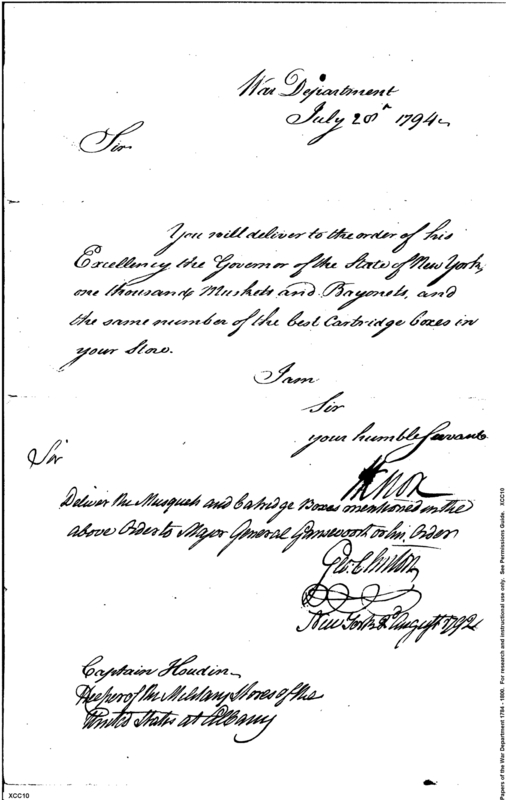 War Department
July 28th 1794
Sir
You will deliver to the order of his
Excellency the Governor of the State of New York,
one thousand Muskets and Bayonets, and
the same number of the best Cartridge boxes in
your Store.
I am
Sir
your humble Servant
HKnox
Sir
Deliver the Musquets and Catridge Boxes mentioned in the
above Order to Major General Gansevoort or his Order
Geo. Clinton
New York August
Captain Houdin
Keeper of the Military Stores of the
United States at Albany
XCC10
Papers of the War Department 1784 - 1800. For research and instructional use only. See Permissions Guide. XCC10